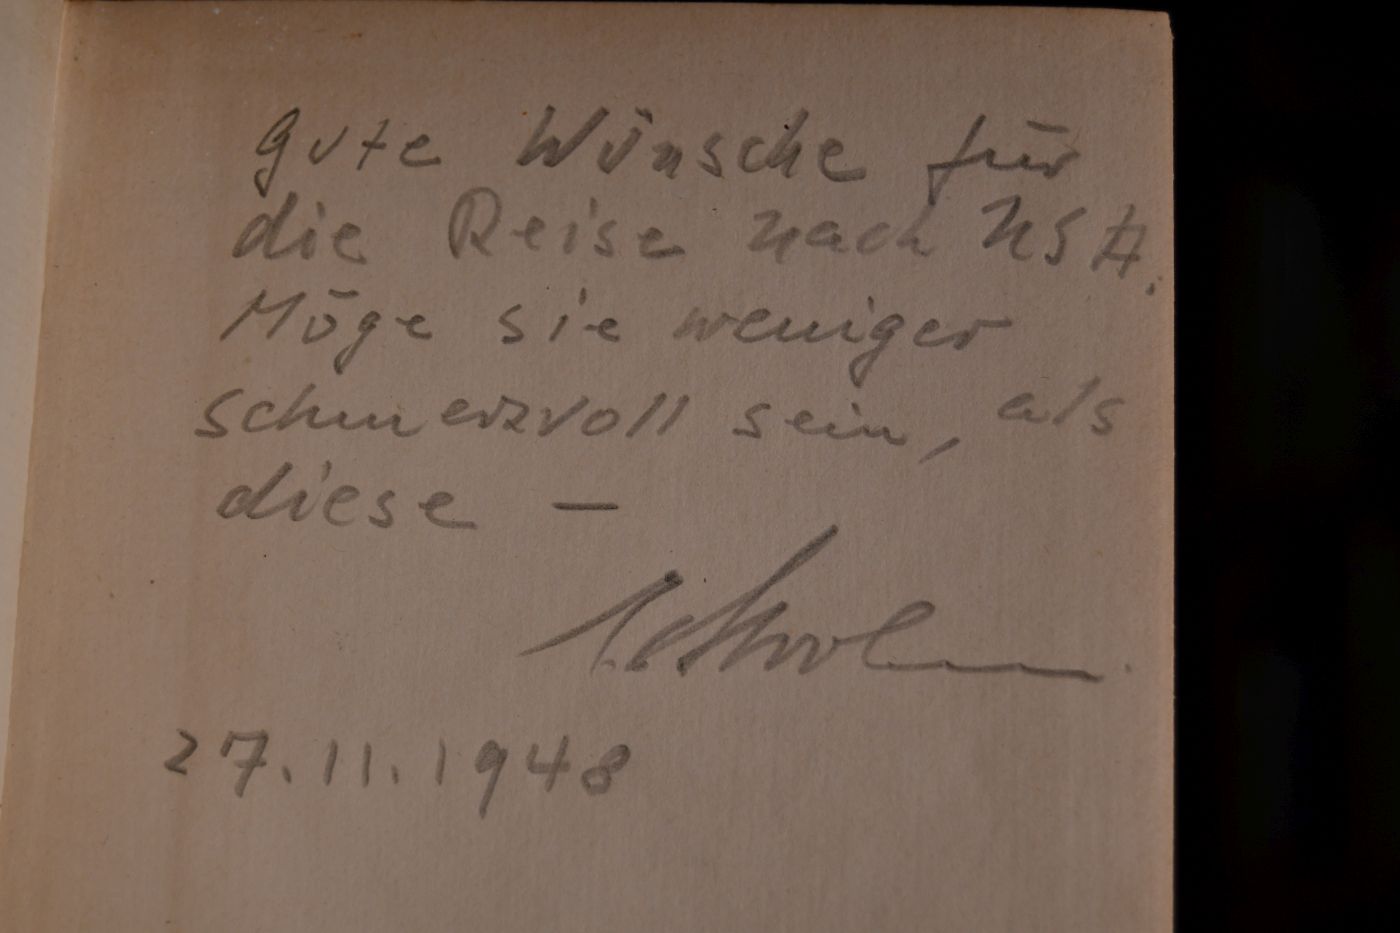 Gute Wünsche für
die Reise nach USA.
Möge sie weniger
schmerzvoll sein, als
diese –
27.11.1948